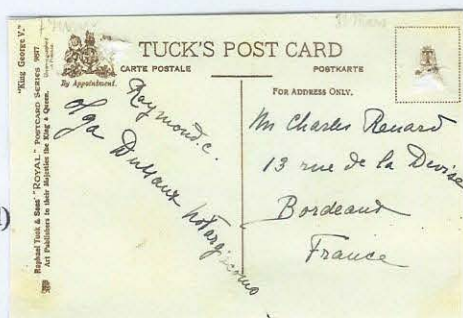 "King George V."
Raphael Tuck & Sons' "ROYAL" POSTCARD SERIES 9517
Art Publishers to their Majesties the King & Queen.
By Appointment.
TUCK'S POST CARD
CARTE POSTALE
POSTKARTE
FOR ADDRESS ONLY.
Raymond. C.
Olga
Mr Charles Renard
13 rue de la Devise
Bordeaux
France